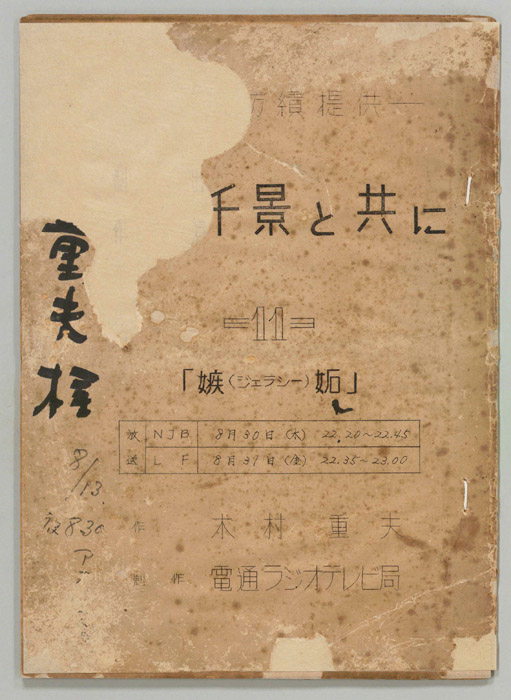 紡績提供―
千景と共に
=11=
「嫉(ジェラシー)妬」
放送 NJB 8月30日(木) 22.20~22.45
LF 8月31日(金) 22.35~23.00
作 木村重夫
制作 電通ラジオテレビ局
重夫様
8/13.
夜8.30